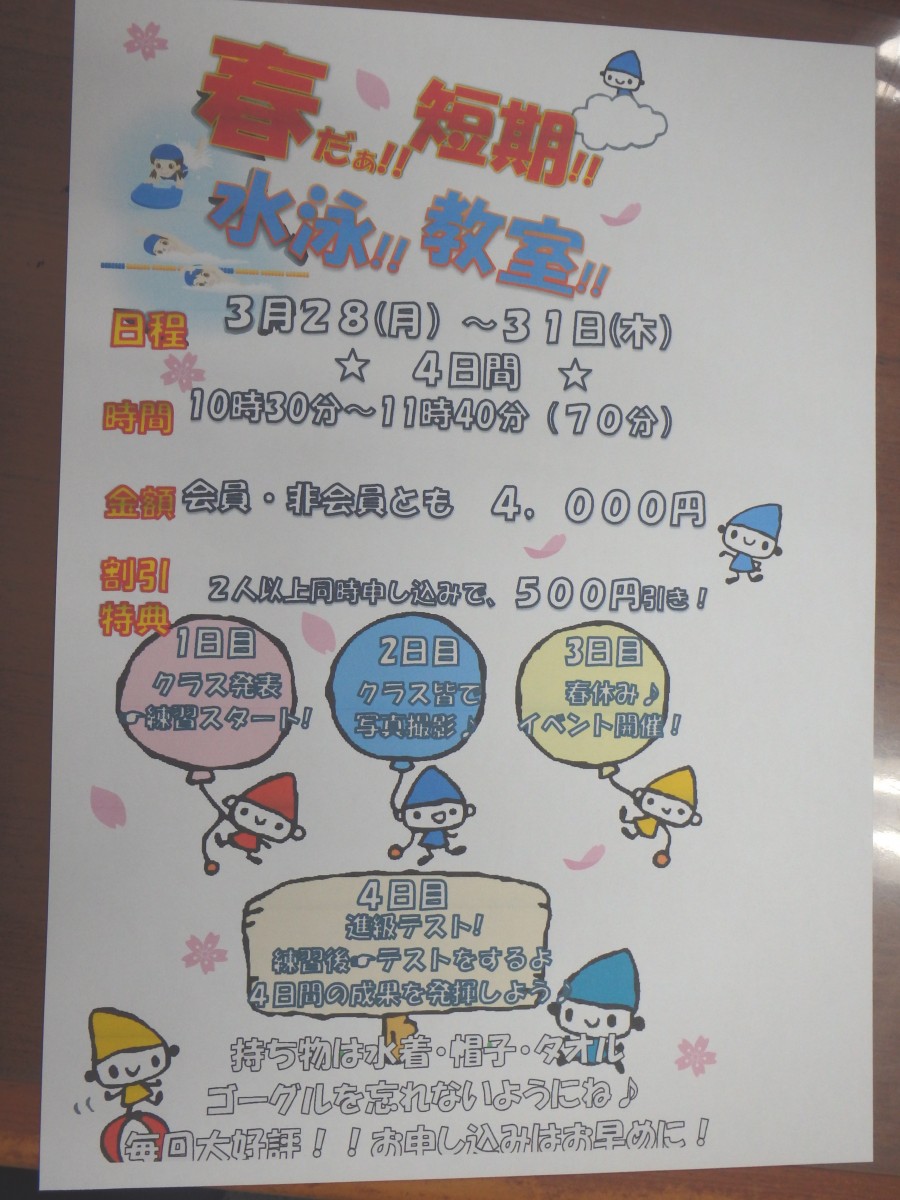 春だぁ!!短期!!
水泳!!教室!!
日程 3月28(月)～31日(木)
☆ 4日間 ☆
時間 10時30分～11時40分(70分)
金額 会員・非会員とも 4,000円
割引
特典 2人以上同時申し込みで、500円引き!
1日目
クラス発表
☛練習スタート!
2日目
クラス皆で
写真撮影♪
3日目
春休み♪
イベント開催!
4日目
進級テスト!
練習後☛テストをするよ
4日間の成果を発揮しよう♪
持ち物は水着・帽子・タオル
ゴーグルを忘れないようにね♪
毎回大好評!!お申し込みはお早めに!